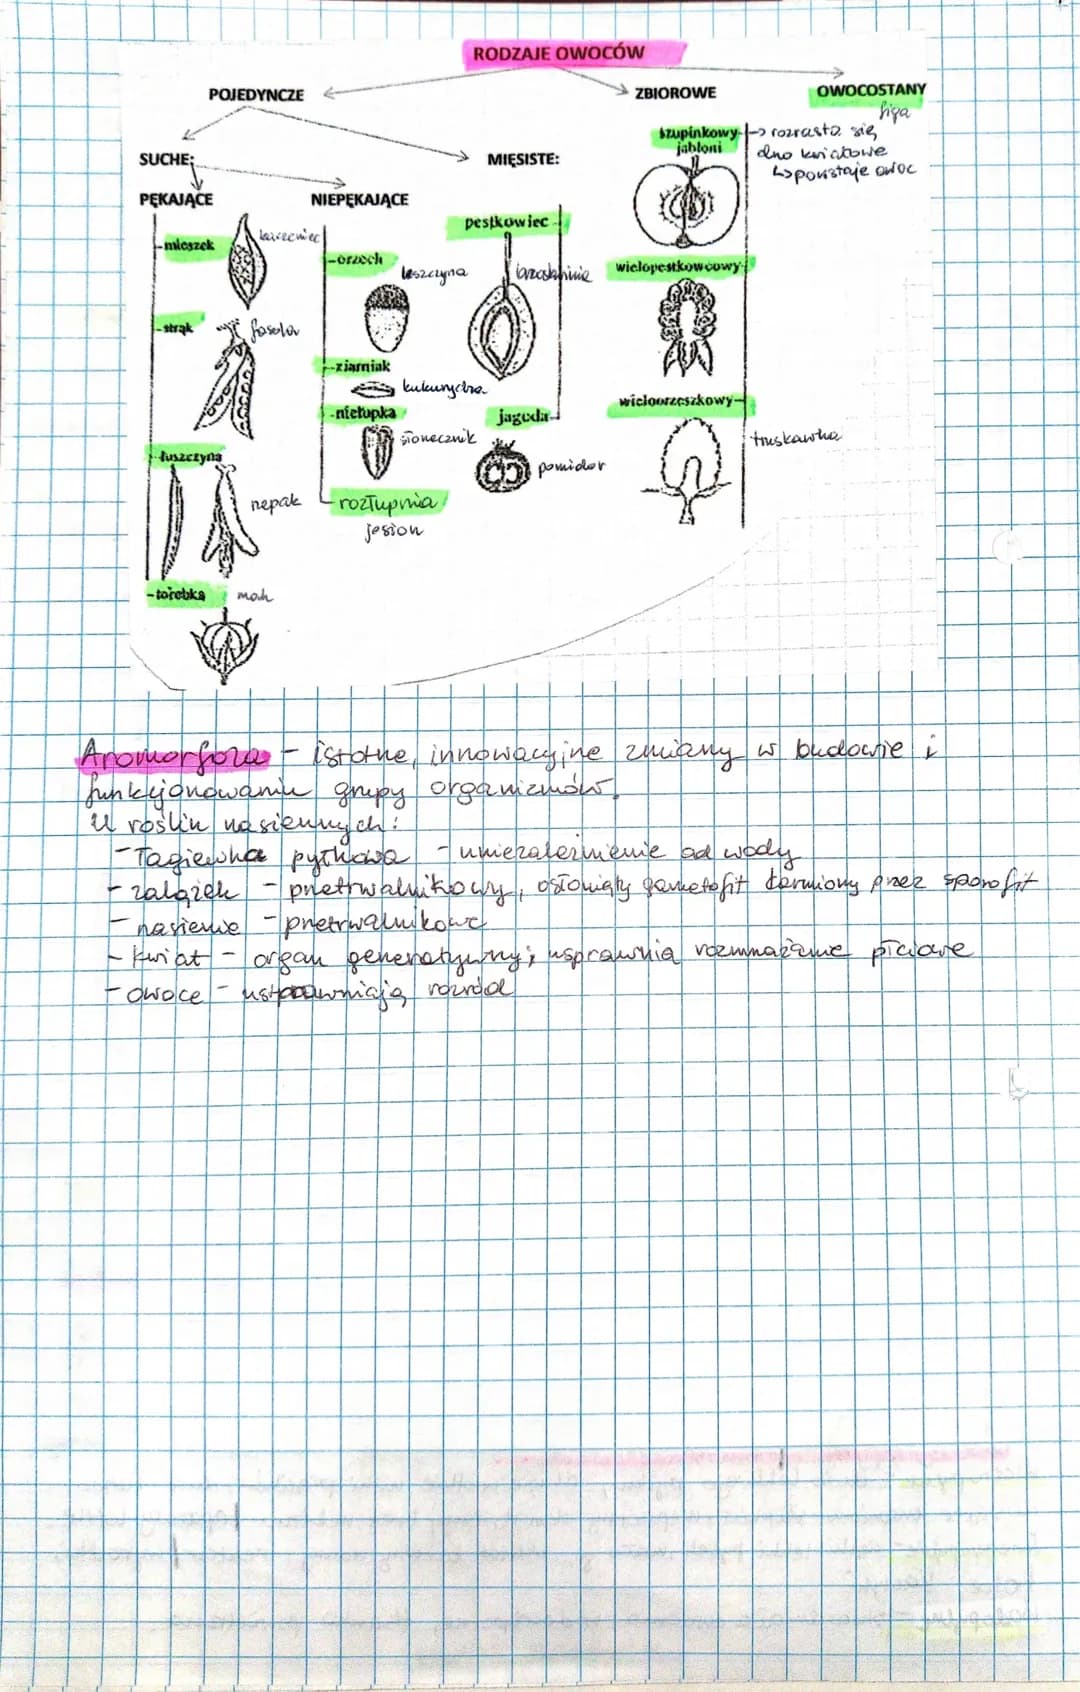 RODZAJE OWOCÓW
POJEDYNCZE
ZBIOROWE
OWOCOSTANY
figa
SUCHE:
MIĘSISTE:
PĘKAJĄCE
NIEPĘKAJĄCE
-mieszek
kaczeniec
-strąk
fasola
-łuszczyna
rzepak
-torebka
mak
-orzech
leszczyna
-ziarniak
kukurydza
-niełupka
słonecznik
rozłupnia
jesion
pestkowiec
brzoskwinia
jagoda
pomidor
szupinkowy
jabłoni
-> rozrasta się
dno kwiatowe
↳ powstaje owoc
wielopestkowcowy
wieloorzeszkowy
truskawka
Aromorfoza - istotne, innowacyjne zmiany w budowie i
funkcjonowaniu grupy organizmów.
U roślin nasiennych:
- łagiewka pyłkowa - uniezależnienie od wody
- zalążek - przetrwalnikowy, osłonięty gametofit karmiony przez sporofit
- nasienie - przetrwalnikowe
- kwiat - organ generatywny; usprawnia rozmnażanie płciowe
- owoce -